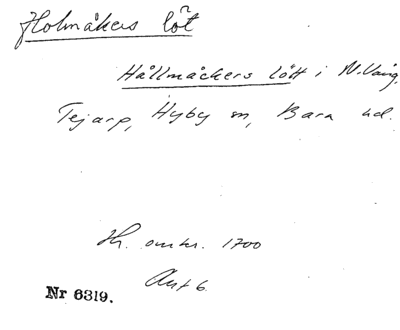 Holmåkers löt
Hållmåckers lött i N. Vång,
Tejarp, Hyby sn, Bara hd.
Hh. omkr. 1700
Avt 6
Nr 6319.